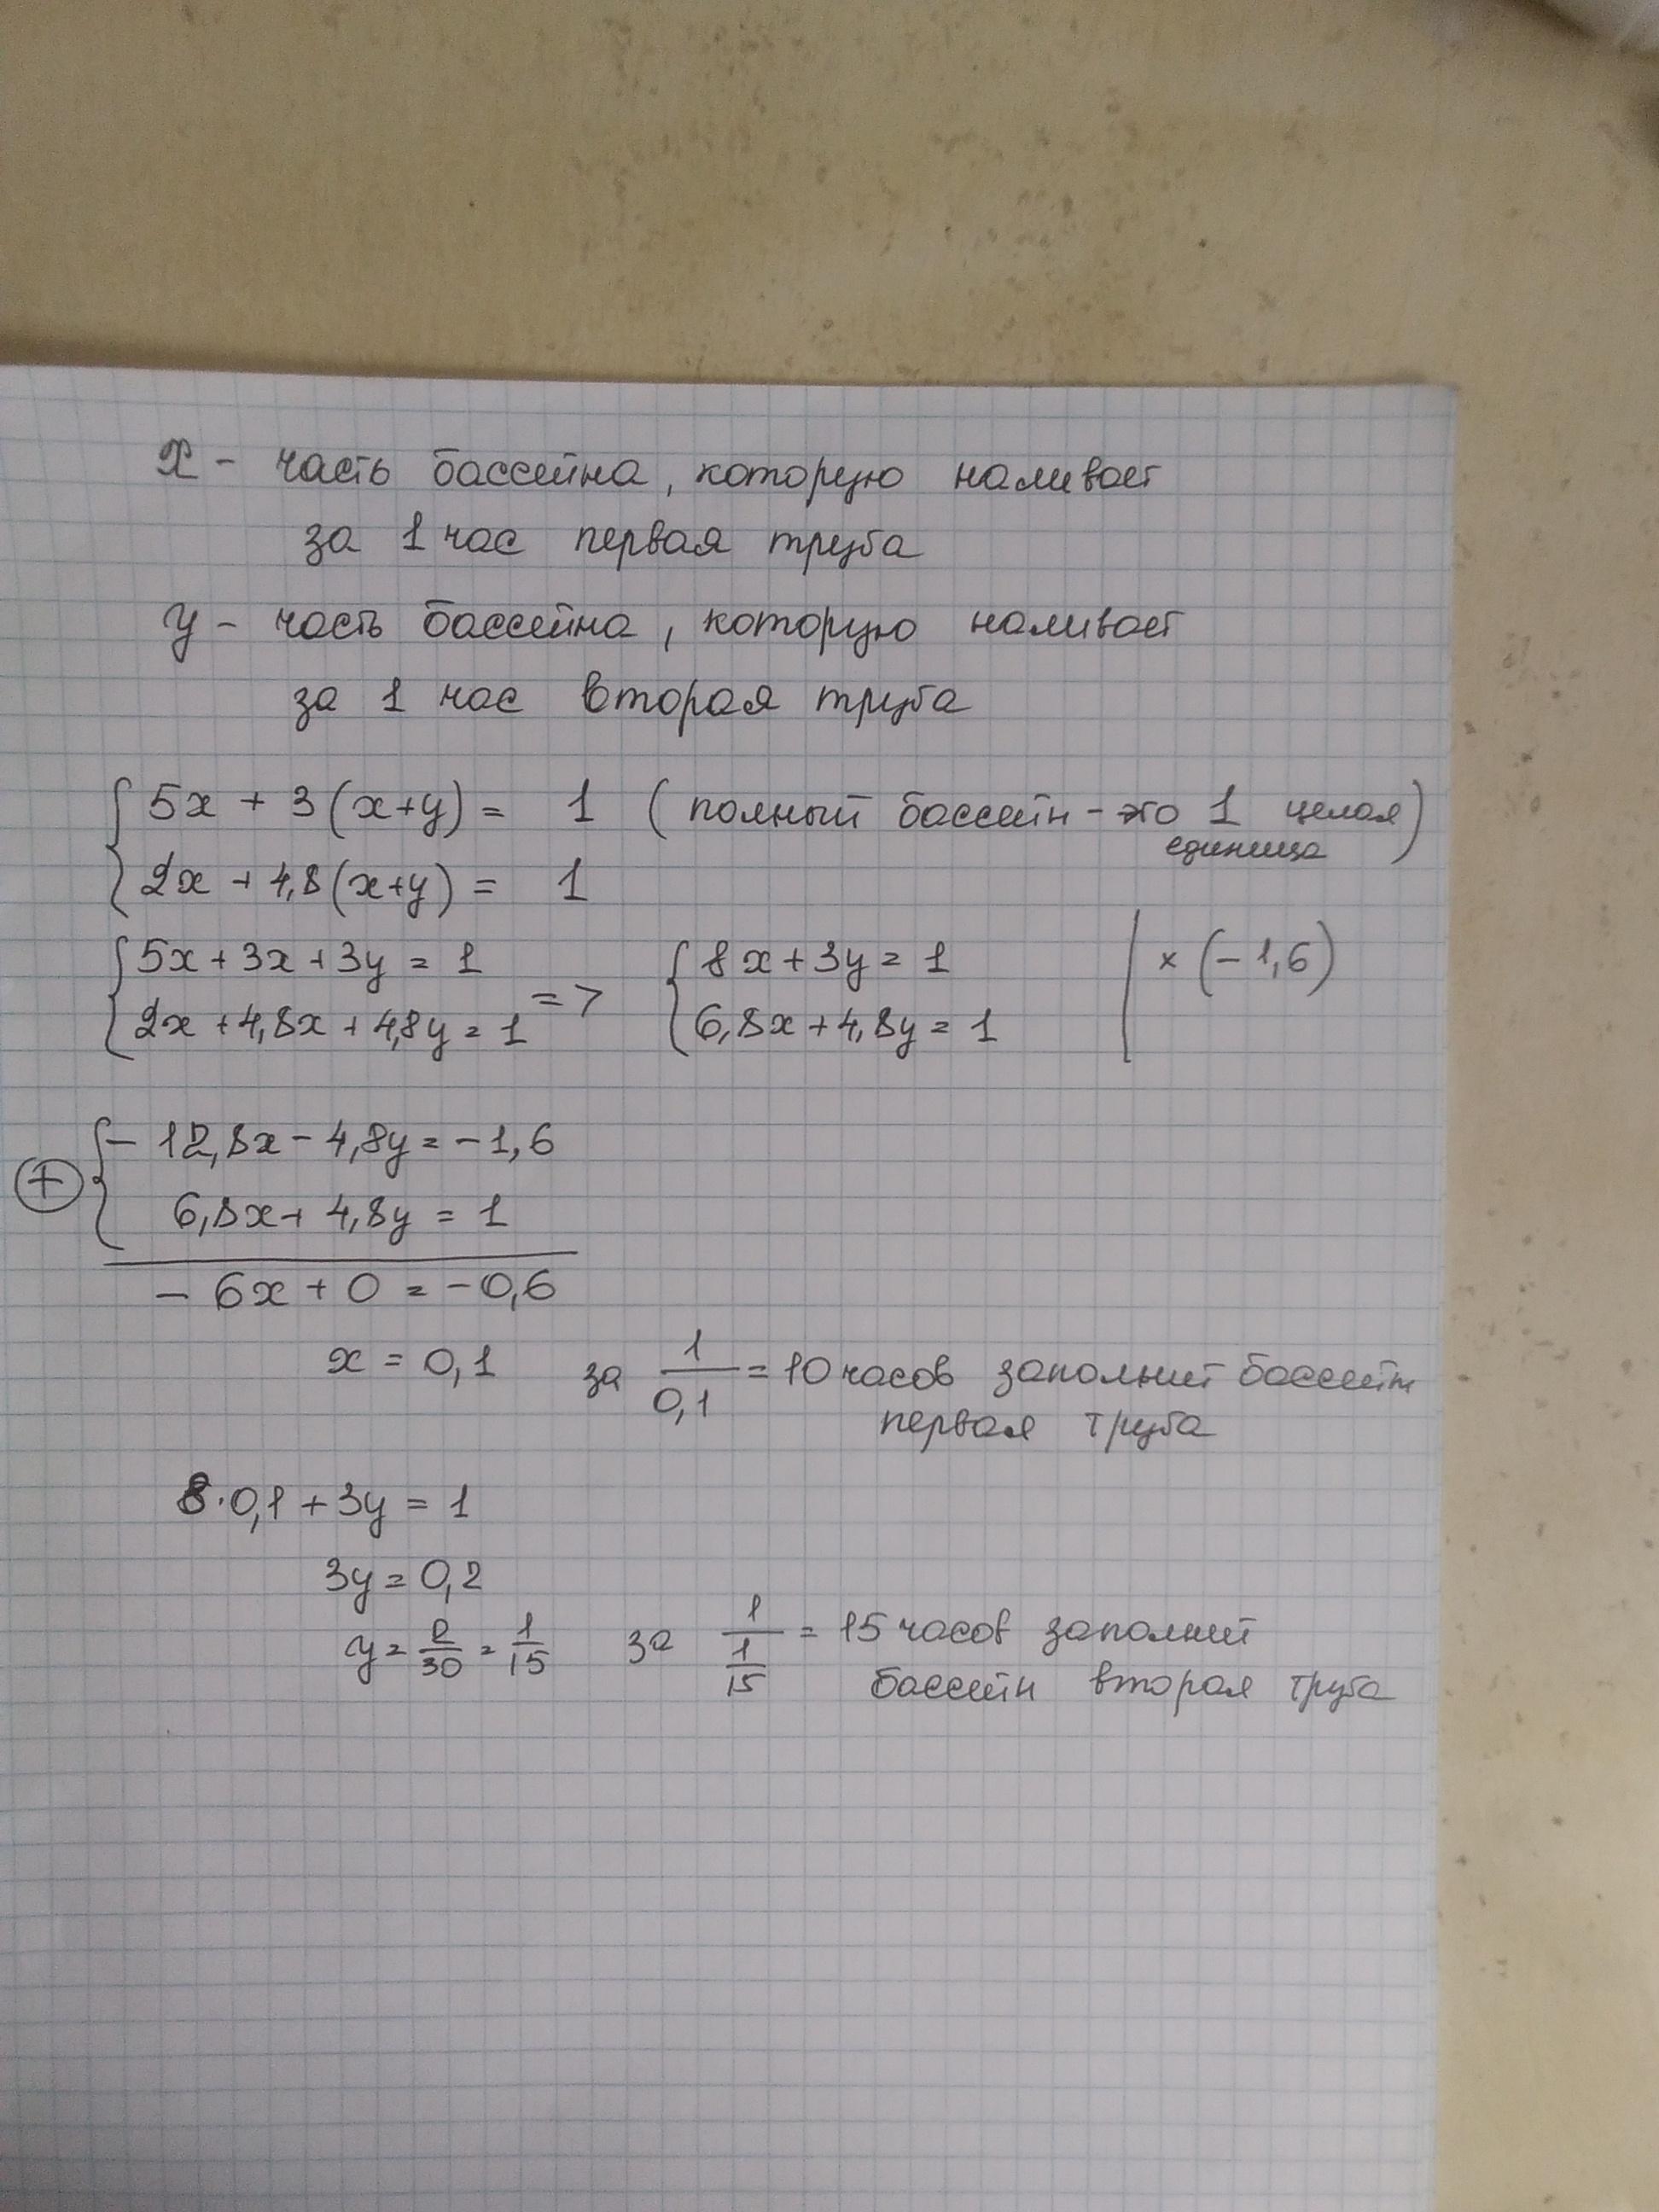 x - часть бассейна, которую наливает
за 1 час первая труба
y - часть бассейна, которую наливает
за 1 час вторая труба
{ 5x + 3(x+y) = 1 (полный бассейн - это 1 целая
единица)
{ 2x + 4,8(x+y) = 1
{ 5x + 3x + 3y = 1 => { 8x + 3y = 1 | × (-1,6)
{ 2x + 4,8x + 4,8y = 1 { 6,8x + 4,8y = 1
+ { - 12,8x - 4,8y = -1,6
6,8x + 4,8y = 1
- 6x + 0 = -0,6
x = 0,1 за 1/0,1 = 10 часов заполнит бассейн
первая труба
8·0,1 + 3y = 1
3y = 0,2
y = 2/30 = 1/15 за 1/(1/15) = 15 часов заполнит
бассейн вторая труба